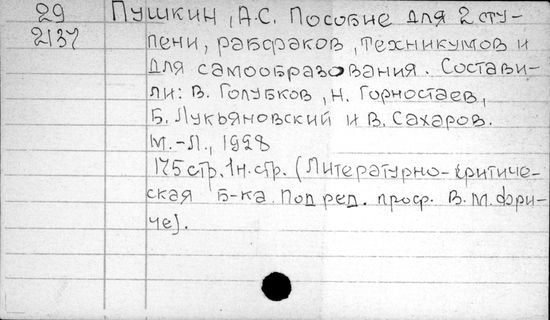 29 Пушкин, А.С. Пособие для 2 сту-
2137 пени, рабфаков, техникумов и
для самообразования. Состави-
ли: В. Голубков, Н. Горностаев,
Б. Лукьяновский и В. Сахаров.
М.-Л., 1928
175 стр. 1 н. стр. (Литературно-критиче-
ская б-ка. Под ред. проф. В. М. Фри-
че).